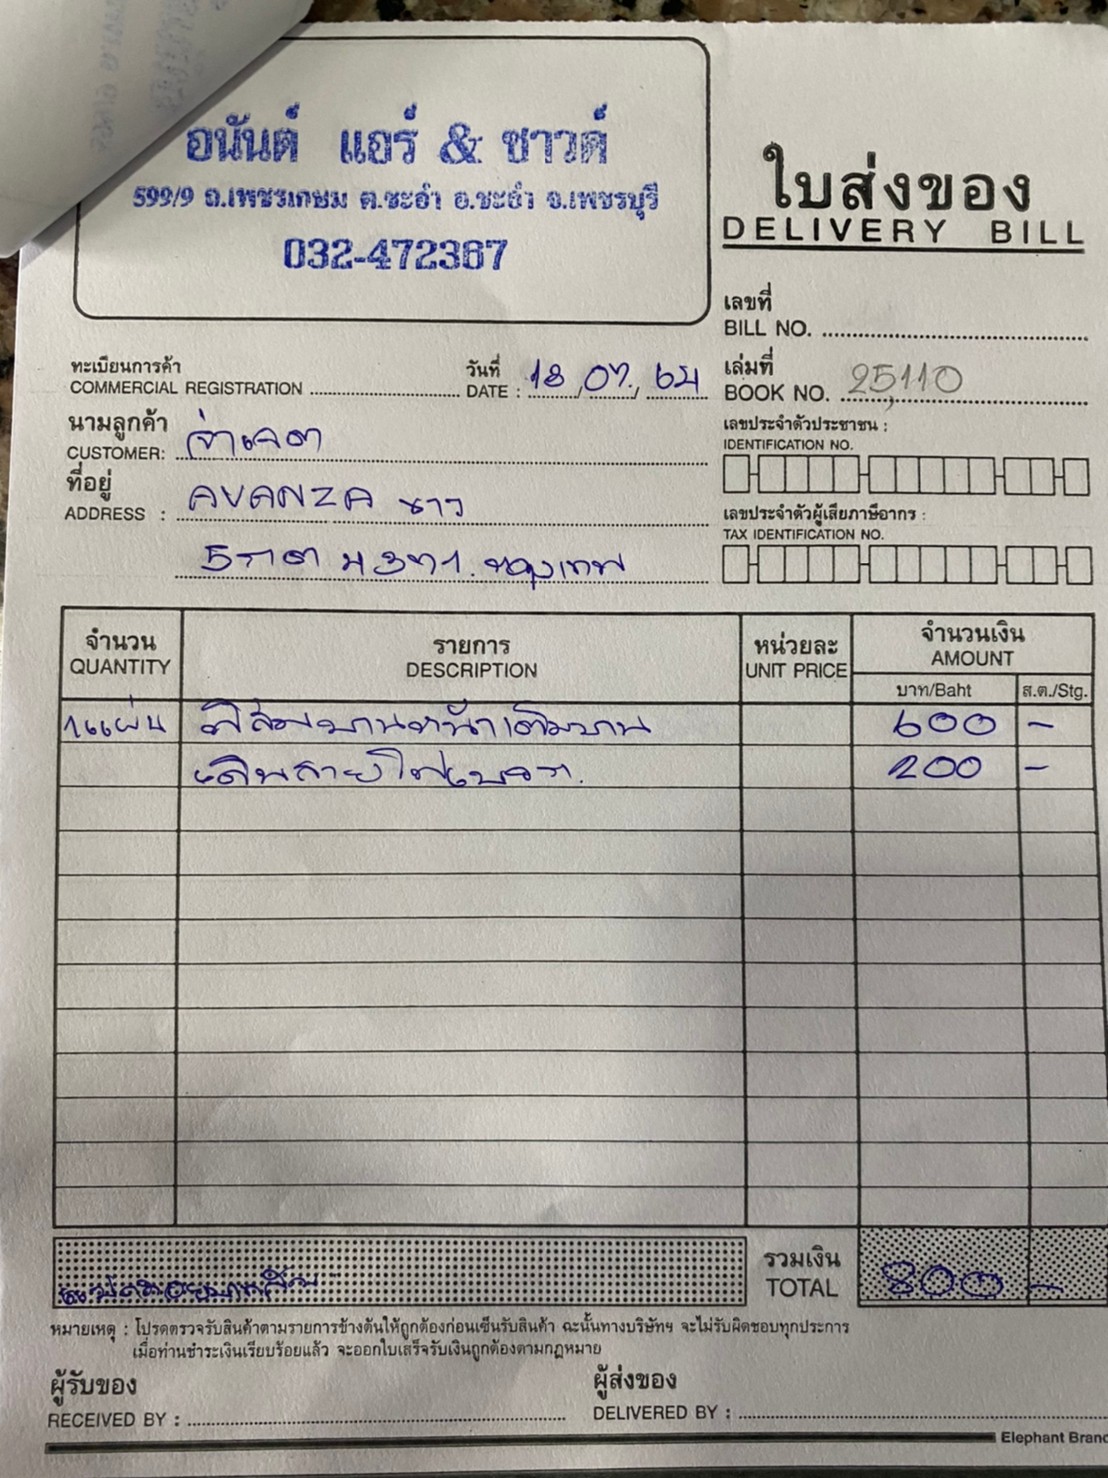 อนันต์ แอร์ & ซาวด์
599/9 ถ.เพชรเกษม ต.ชะอำ อ.ชะอำ จ.เพชรบุรี
032-472367
ใบส่งของ
DELIVERY BILL
เลขที่
BILL NO.
ทะเบียนการค้า
COMMERCIAL REGISTRATION
วันที่
DATE : 18 / 07 / 64
เล่มที่
BOOK NO. 25,110
นามลูกค้า
CUSTOMER:
เลขประจำตัวประชาชน :
IDENTIFICATION NO.
ที่อยู่
ADDRESS : AVANZA ขาว
เลขประจำตัวผู้เสียภาษีอากร :
TAX IDENTIFICATION NO.
กรุงเทพ
จำนวน
QUANTITY
รายการ
DESCRIPTION
หน่วยละ
UNIT PRICE
จำนวนเงิน
AMOUNT
บาท/Baht
ส.ต./Stg.
1แผ่น ฟิล์มบานหน้าเต็มบาน 600 -
เดินสายไฟ 200 -
แปดร้อยบาทถ้วน
รวมเงิน
TOTAL
800 -
หมายเหตุ : โปรดตรวจรับสินค้าตามรายการข้างต้นให้ถูกต้องก่อนเซ็นรับสินค้า ฉะนั้นทางบริษัทฯ จะไม่รับผิดชอบทุกประการ
เมื่อท่านชำระเงินเรียบร้อยแล้ว จะออกใบเสร็จรับเงินถูกต้องตามกฎหมาย
ผู้รับของ
RECEIVED BY :
ผู้ส่งของ
DELIVERED BY :
Elephant Brand